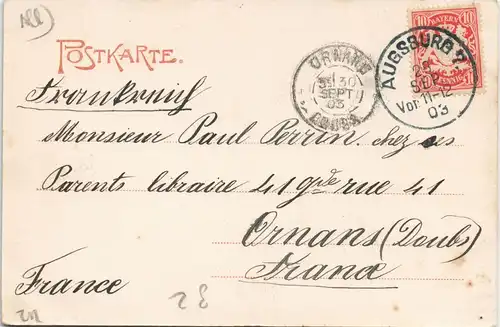 All
POSTKARTE.
BAYERN
10 10
PFENNIG
AUGSBURG 7
SEP
Vor. 11-12
03
ORNANS
30
SEPT
03
DOUBS
Frankreich
Monsieur Paul Perrin, chez ses
Parents libraire 41 gde rue 41
Ornans (Doubs)
France
France